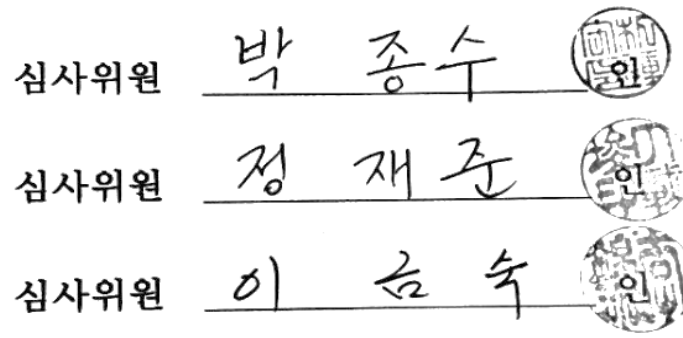 심사위원 박 종 수 인
심사위원 정 재 준 인
심사위원 이 금 숙 인